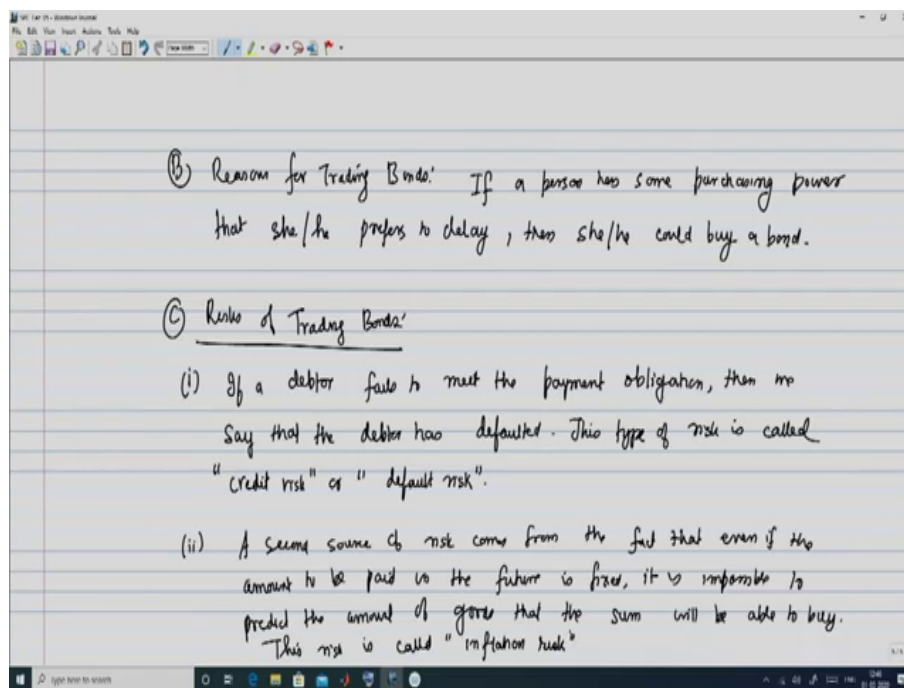 File Edit View Insert Actions Tools Help
Page Width
Ⓑ Reasons for Trading Bonds: If a person has some purchasing power
that she/he prefers to delay, then she/he could buy a bond.
Ⓒ Risks of Trading Bonds:
(i) If a debtor fails to meet the payment obligation, then we
say that the debtor has defaulted. This type of risk is called
"credit risk" or "default risk".
(ii) A second source of risk comes from the fact that even if the
amount to be paid in the future is fixed, it is impossible to
predict the amount of goods that the sum will be able to buy.
This risk is called "inflation risk"
Type here to search